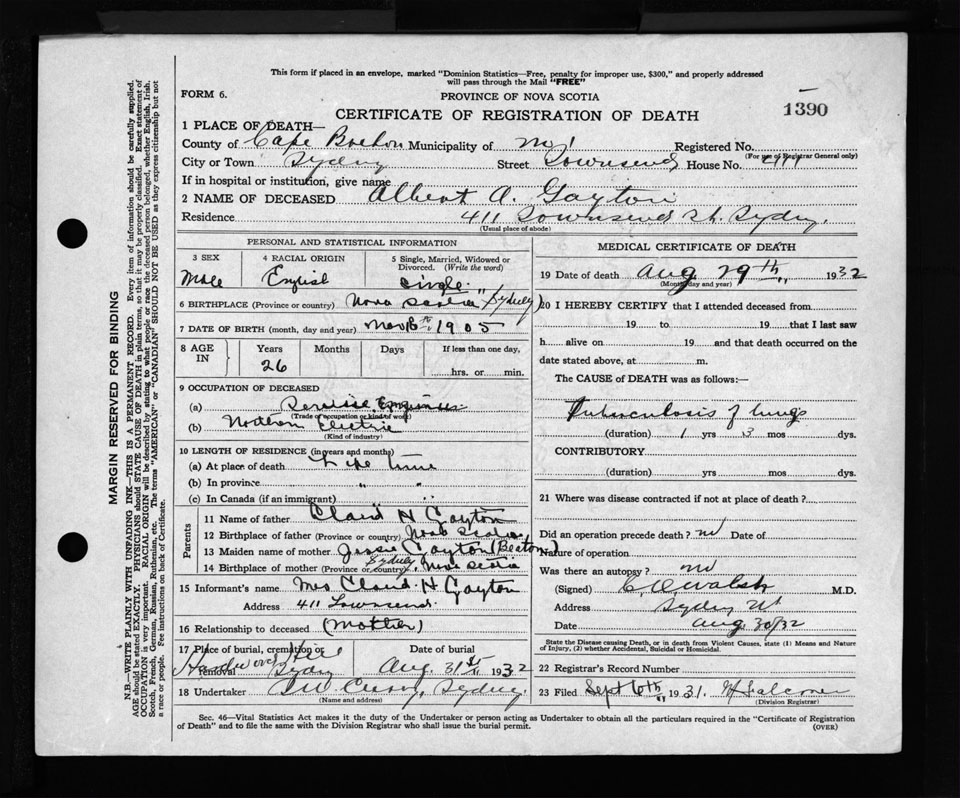 This form if placed in an envelope, marked "Dominion Statistics—Free, penalty for improper use, $300," and properly addressed
will pass through the Mail "FREE"
FORM 6.
PROVINCE OF NOVA SCOTIA
1390
CERTIFICATE OF REGISTRATION OF DEATH
1 PLACE OF DEATH—
County of Cape Breton Municipality of Registered No.
(For use of Registrar General only)
City or Town Sydney Street Townsend House No. 411
If in hospital or institution, give name
2 NAME OF DECEASED Albert A. Gayton
Residence 411 Townsend St. Sydney.
(Usual place of abode)
PERSONAL AND STATISTICAL INFORMATION
3 SEX
Male
4 RACIAL ORIGIN
English
5 Single, Married, Widowed or
Divorced. (Write the word)
Single
6 BIRTHPLACE (Province or country) Nova Scotia (Sydney)
7 DATE OF BIRTH (month, day and year) 1905
8 AGE IN
Years Months Days If less than one day,
26
hrs. or min.
9 OCCUPATION OF DECEASED
(a)
(Trade or occupation or kind of work)
(b) Northern Electric
(Kind of industry)
10 LENGTH OF RESIDENCE (in years and months)
(a) At place of death Life time
(b) In province " "
(c) In Canada (if an immigrant) "
Parents
11 Name of father H Gayton
12 Birthplace of father (Province or country) Nova Scotia
13 Maiden name of mother Jessie Gayton (Beaton)
14 Birthplace of mother (Province or country) Sydney, Nova Scotia
15 Informant's name Mrs H Gayton
Address 411 Townsend.
16 Relationship to deceased (Mother)
17 Place of burial, cremation or removal
Hardwood Hill
Sydney
Date of burial
Aug. 31st 1932
18 Undertaker Sydney.
(Name and address)
MEDICAL CERTIFICATE OF DEATH
19 Date of death Aug 29th 1932
(Month, day and year)
20 I HEREBY CERTIFY that I attended deceased from
19 to 19 that I last saw
h alive on 19 and that death occurred on the
date stated above, at m.
The CAUSE OF DEATH was as follows:—
Tuberculosis of lungs
(duration) 1 yrs 3 mos dys.
CONTRIBUTORY
(duration) yrs mos dys.
21 Where was disease contracted if not at place of death?
Did an operation precede death? no Date of
Nature of operation
Was there an autopsy? no
(Signed) Walsh M.D.
Address Sydney
Date Aug 30/32
State the Disease causing Death, or in death from Violent Causes, state (1) Means and Nature
of Injury, (2) whether Accidental, Suicidal or Homicidal.
22 Registrar's Record Number
23 Filed Sept 1931. Falconer
(Division Registrar)
Sec. 46—Vital Statistics Act makes it the duty of the Undertaker or person acting as Undertaker to obtain all the particulars required in the "Certificate of Registration
of Death" and to file the same with the Division Registrar who shall issue the burial permit.
(OVER)
MARGIN RESERVED FOR BINDING
N.B.—WRITE PLAINLY WITH UNFADING INK—THIS IS A PERMANENT RECORD. Every item of information should be carefully supplied.
AGE should be stated EXACTLY. PHYSICIANS should STATE CAUSE OF DEATH in plain terms, so that it may be properly classified. Exact statement of
OCCUPATION is very important. RACIAL ORIGIN will be described by stating to what people or race the deceased person belonged, whether English, Irish,
Scotch, French, German, Russian, Ruthenian, etc. The terms "AMERICAN" or "CANADIAN" SHOULD NOT BE USED as they express citizenship but not
a race or people. Fee instructions on back of Certificate.